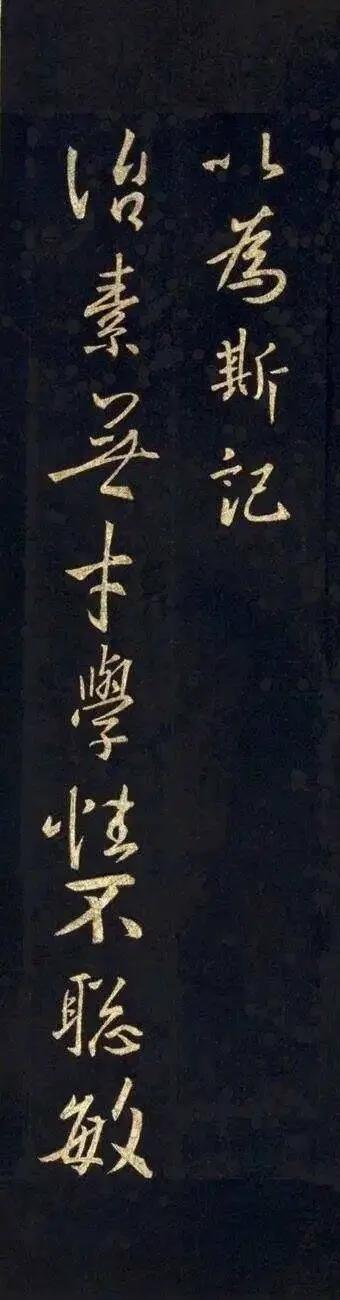 以為斯記
治素無才學性不聰敏